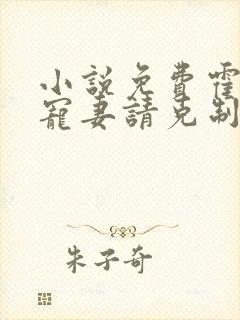 小說免費霍
寵妻請克制
朱子奇